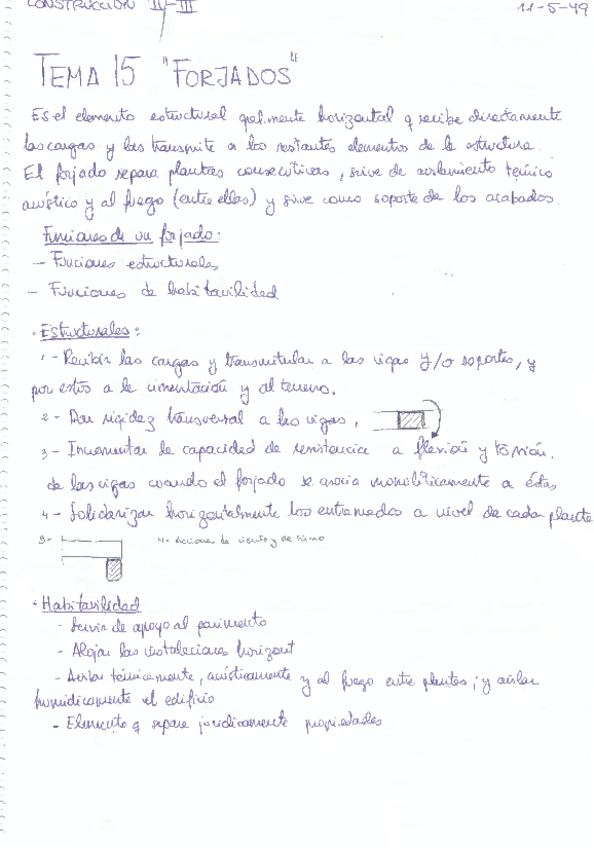 CONSTRUCCIÓN II-III 11-5-99
TEMA 15 "FORJADOS"
Es el elemento estructural gral.mente horizontal q recibe directamente
las cargas y las transmite a los restantes elementos de la estructura.
El forjado separa plantas consecutivas, sirve de aislamiento térmico
acústico y al fuego (entre ellas) y sirve como soporte de los acabados.
Funciones de un forjado:
- Funciones estructurales
- Funciones de habitabilidad
· Estructurales:
1 - Recibir las cargas y transmitirlas a las vigas y/o soportes, y
por estos a la cimentación y al terreno.
2 - Dar rigidez transversal a las vigas.
3 - Incrementar la capacidad de resistencia a flexión y torsión.
de las vigas cuando el forjado se asocia monolíticamente a éstas
4 - Solidarizar horizontalmente los entramados a nivel de cada planta
3- 4- Acciones de viento y de sismo
· Habitabilidad
- Servir de apoyo al pavimento
- Alojar las instalaciones horizont
- Aislar térmicamente, acústicamente y al fuego entre plantas; y aislar
humídicamente el edificio
- Elemento q separa jurídicamente propiedades